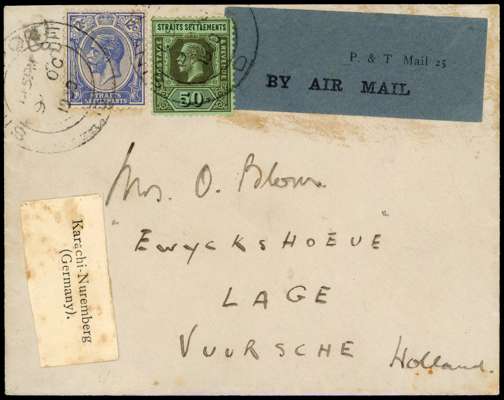 STRAITS SETTLEMENTS
50
STRAITS
SETTLEMENTS
P. & T Mail 25
BY AIR MAIL
Mrs. O. Blom.
"EWYCKSHOEVE"
LAGE
VUURSCHE Holland.
Karachi-Nuremberg
(Germany).